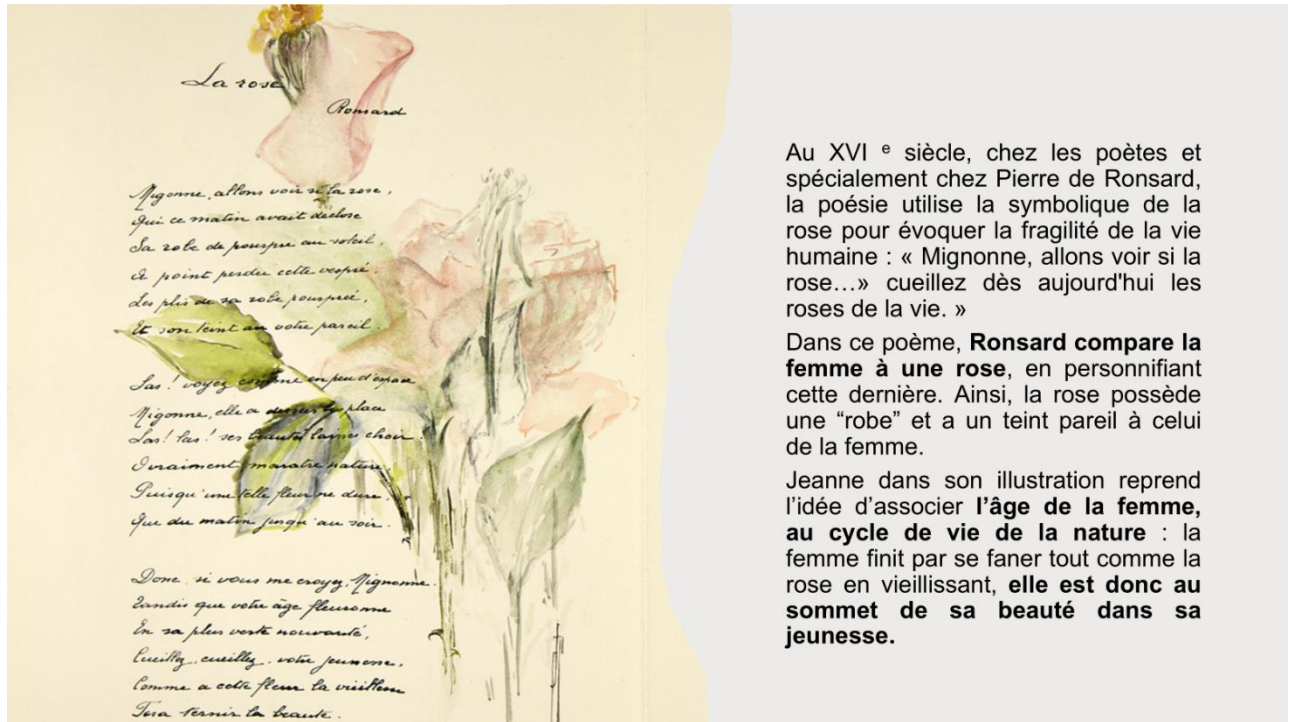 La rose
Ronsard
Migonne, allons voir si la rose,
Qui ce matin avait déclose
Sa robe de pourpre au soleil,
A point perdu cette vespré.
Les plis de sa robe pourprée,
Et son teint au votre pareil.
Las! voyez comme en peu d'espace
Migonne, elle a dessus la place
Las! las! ses beautés laissés choir.
O vraiment, maratre nature,
Puisqu'une telle fleur ne dure,
Que du matin jusqu'au soir.
Donc, si vous me croyez, Mignonne.
Tandis que votre âge fleuronne
En sa plus verte nouveauté,
Cueillez, cueillez, votre jeunesse,
Comme a cette fleur la vieillesse
Fera ternir la beaute.
Au XVI e siècle, chez les poètes et
spécialement chez Pierre de Ronsard,
la poésie utilise la symbolique de la
rose pour évoquer la fragilité de la vie
humaine : « Mignonne, allons voir si la
rose…» cueillez dès aujourd'hui les
roses de la vie. »
Dans ce poème, Ronsard compare la
femme à une rose, en personnifiant
cette dernière. Ainsi, la rose possède
une “robe” et a un teint pareil à celui
de la femme.
Jeanne dans son illustration reprend
l’idée d’associer l’âge de la femme,
au cycle de vie de la nature : la
femme finit par se faner tout comme la
rose en vieillissant, elle est donc au
sommet de sa beauté dans sa
jeunesse.